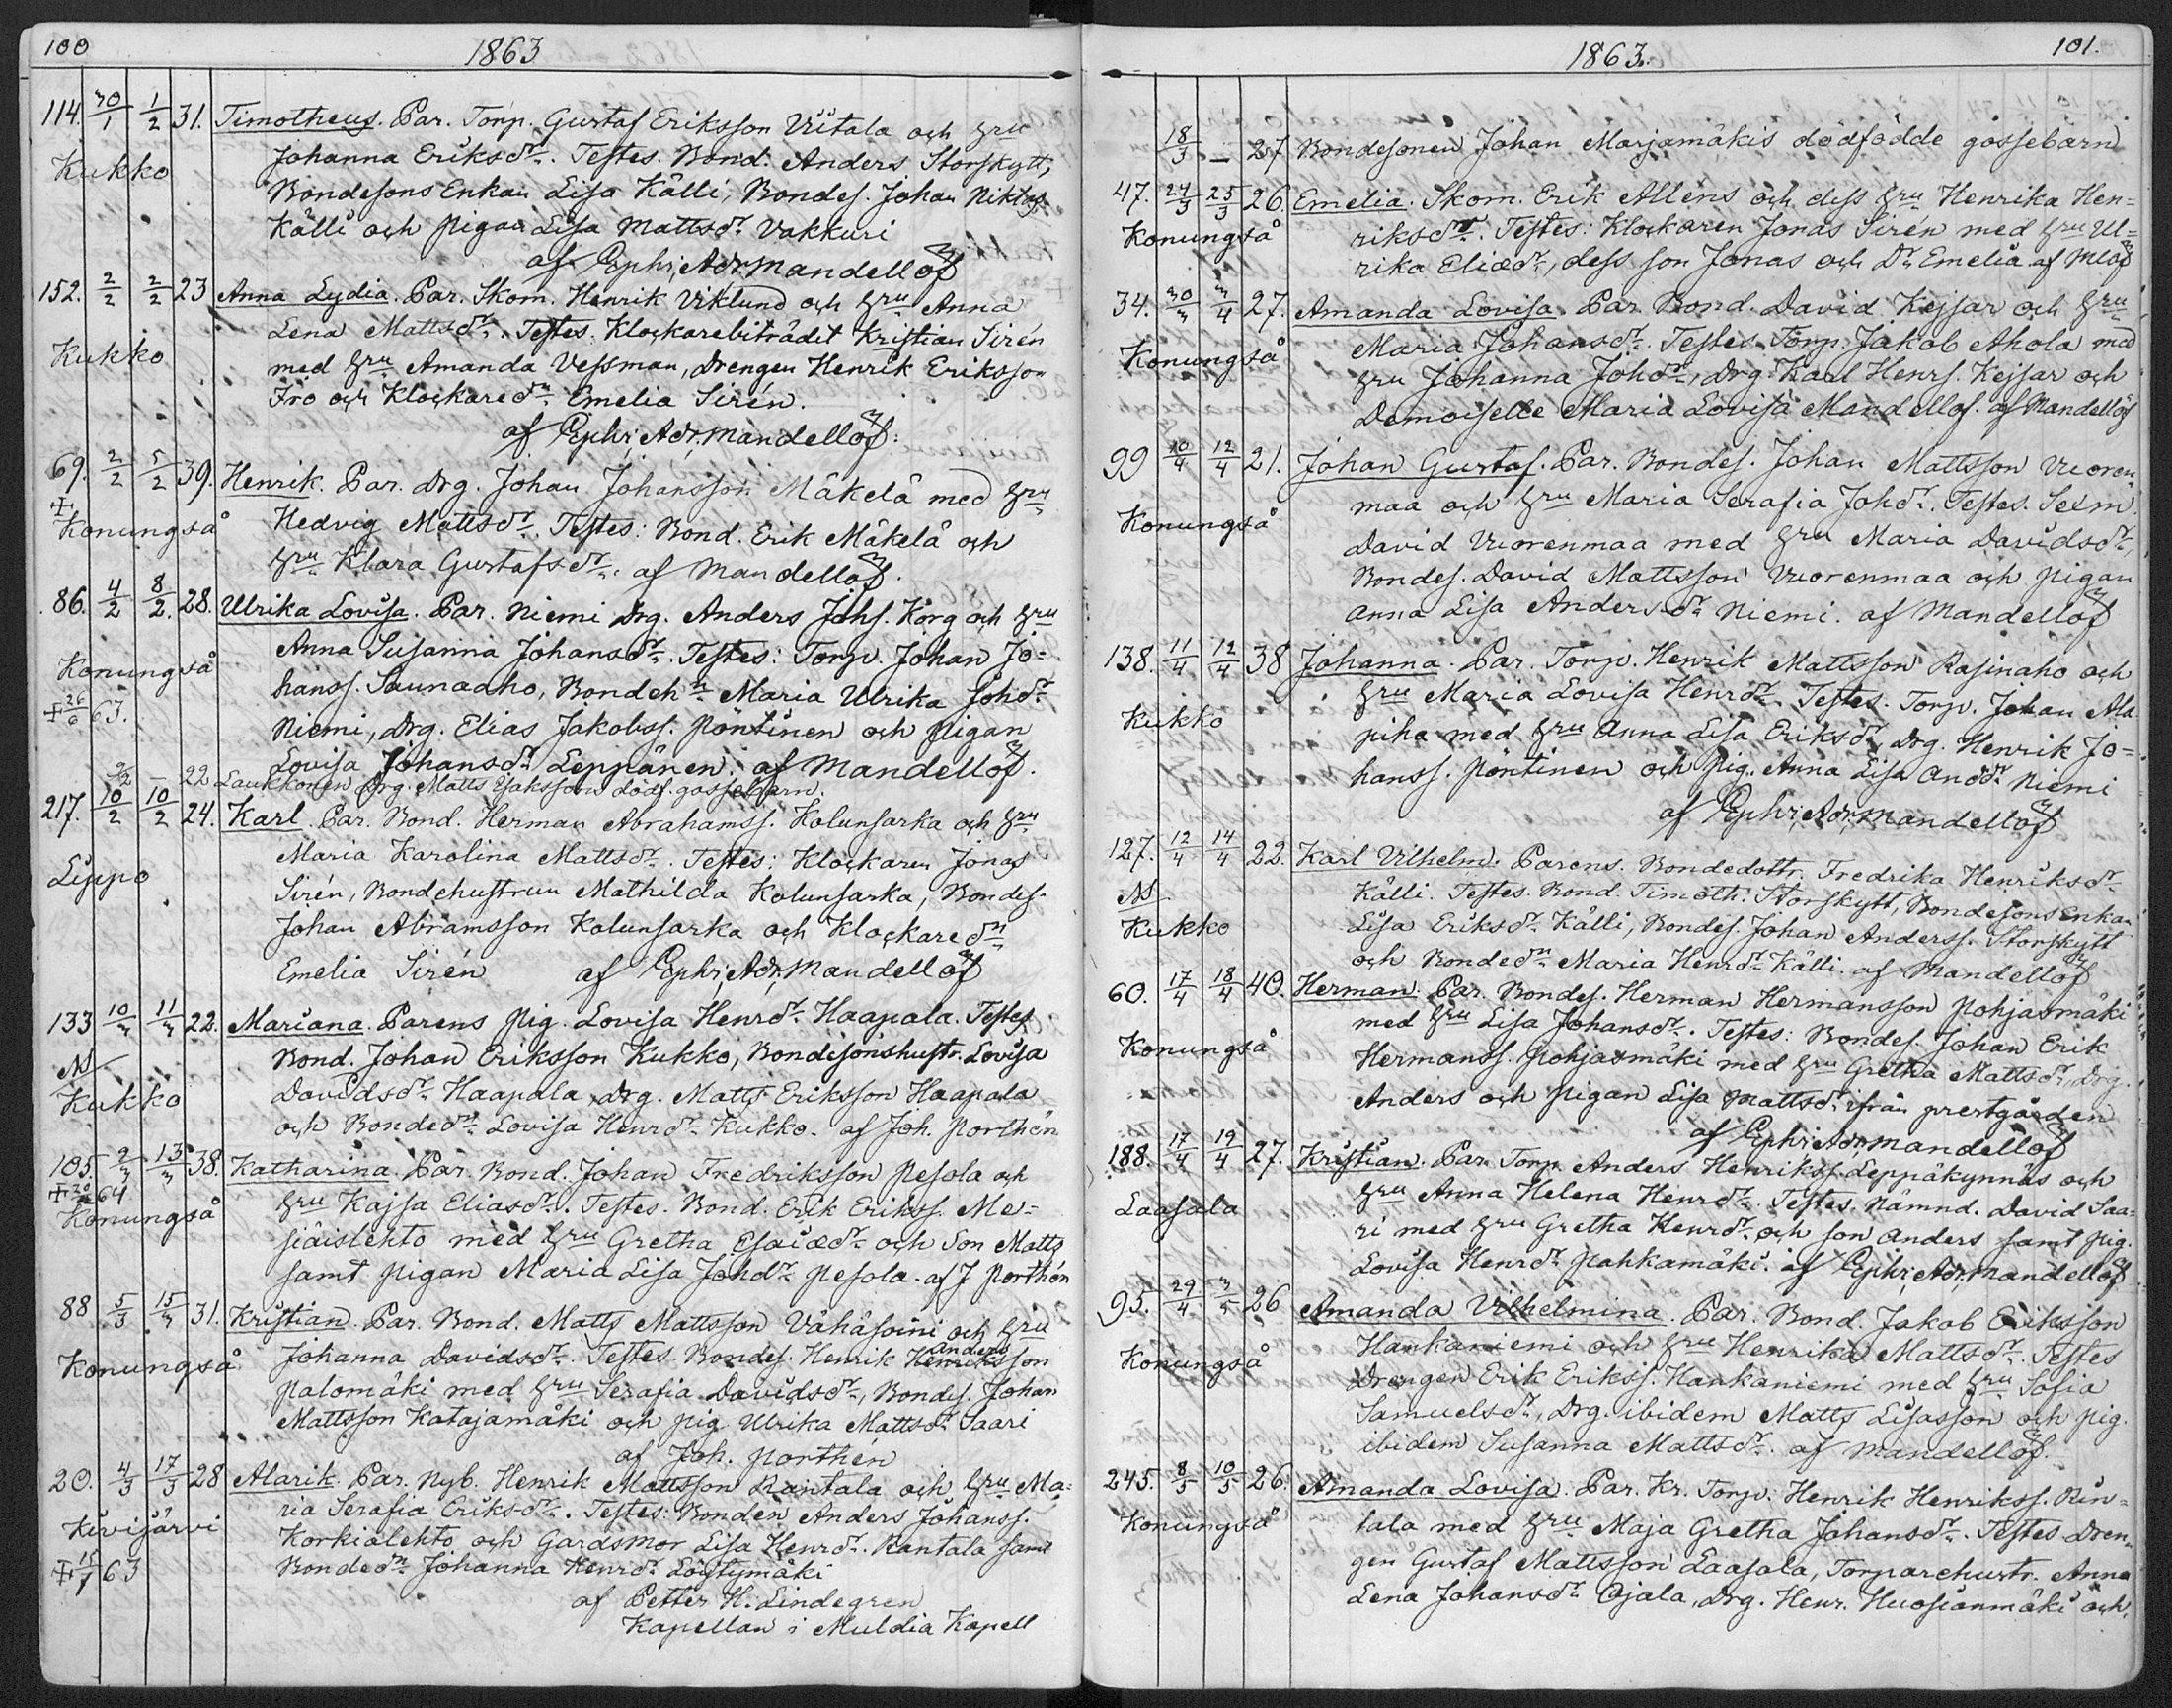 100
1863
114. 30/1 1/2 31. Timotheus. Par. Torp. Gustaf Eriksson Uitala och hru
Johanna Eriksdr. Testes. Bond. Anders Storskytt,
Kukko
Bondesons Enkan Lisa Källi, Bondes. Johan Niklas
Källi och pigan Lisa Mattsdr Vakkuri
af Ephr. Adr. Mandellöf
152. 2/2 2/2 23 Anna Lydia. Par. Skom. Henrik Viklund och hru Anna
Lena Mattsdr. Testes. Klockarebiträdet Kristian Sirén
Kukko
med hru Amanda Vessman, Drengen Henrik Eriksson
Fro och Klockaredr Emelia Sirén.
af Ephr. Adr. Mandellöf.
69. 2/2 5/2 39. Henrik. Par. Drg. Johan Johansson Mäkelä med hru
+
Konungså
Hedvig Mattsdr. Testes: Bond. Erik Mäkelä och
hru Klara Gustafsdr. af Mandellöf.
86. 4/2 8/2. 28. Ulrika Lovisa. Par. Niemi Drg. Anders Johs. Korg och hru
Anna Susanna Johansdr. Testes: Torp. Johan Jo=
Konungså
hanss. Saunaaho, Bondeh. Maria Ulrika Johdr
+ 26/6 63.
Niemi, Drg. Elias Jakobss. Pöntinen och pigan
Lovisa Johansdr Leppänen. af Mandellöf.
9/2 — 22 Laukkonen Drg. Matts Esaksons dödf. gossebarn.
217. 10/2 10/2 24. Karl. Par. Bond. Herman Abrahamss. Kolunsarka och hru
Maria Karolina Mattsdr. Testes: Klockaren Jonas
Lippo
Sirén, Bondehustrun Mathilda Kolunsarka, Bondes.
Johan Abramsson Kolunsarka och Klockaredn
Emelia Sirén af Ephr. Adr. Mandellöf
133 10/3 11/3 22. Mariana. Parens Pig. Lovisa Henrdr Haapala. Testes
Bond. Johan Eriksson Kukko, Bondesonshustr. Lovisa
Kukko
Davidsdr Haapala Drg. Matts Eriksson Haapala
och Bondedn Lovisa Henrdr Kukko. af Joh. Porthén
105 2/3 13/3 38. Katharina. Par. Bond. Johan Fredriksson Pesola och
64
Konungså
hru Kajsa Eliasdr. Testes. Bond. Erik Erikss. Me=
siäislehto med hru Gretha Esaiædr och Son Matts
samt pigan Maria Lisa Johdr Pesola. af J Porthén
88 5/3 15/3 31. Kristian. Par. Bond. Matts Mattsson Vähäsoini och hru
Anders
Johanna Davidsdr. Testes. Bondes. Henrik Henriksson
Konungså
Palomäki med hru Serafia Davidsdr, Bondes. Johan
Mattsson Katajamäki och pig. Ulrika Mattsdr Saari
af Joh. Porthén
20. 4/3 17/3 28 Alarik. Par. Nyb. Henrik Mattsson Rantala och hru Ma=
ria Serafia Eriksdr. Testes: Bonden Anders Johanss.
Kivijärvi
Korkialehto och Gardsmor Lisa Henrdr. Rantala samt
+ 63
Bondedn Johanna Henrdr Löytymäki
af Petter H. Lindegren
Kapellan i Muldia Kapell
1863.
101.
18/3 — 27 Bondesonen Johan Marjamäkis dödfödde gossebarn
47. 24/3 25/3 26. Emelia. Skom. Erik Alléns och dess hru Henrika Hen=
Konungså
riksdr. Testes: Klockaren Jonas Sirén med hru Ul=
rika Eliædr, dess son Jonas och Dr Emelia af Mlöf
34. 30/3 3/4 27. Amanda Lovisa. Par. Bond. David Kejsar och hru
Konungså
Maria Johansdr. Testes. Torp. Jakob Ahola med
hru Johanna Johdr, Drg. Karl Henrs. Kejsar och
Demoiselle Maria Lovisa Mandellöf. af Mandellöf
99 10/4 12/4 21. Johan Gustaf. Par. Bondes. Johan Mattsson Vuoren=
maa och hru Maria Serafia Johdr. Testes. Sexm.
Konungså
David Vuorenmaa med hru Maria Davidsdr,
Bondes. David Mattsson Vuorenmaa och pigan
Anna Lisa Andersdr Niemi. af Mandellöf
138. 11/4 12/4 38 Johanna. Par. Torp. Henrik Mattsson Rasinaho och
hru Maria Lovisa Henrdr. Testes. Torp. Johan Ala
Kukko
piha med hru Anna Lisa Eriksdr, Drg. Henrik Jo=
hanss. Pöntinen och pig. Anna Lisa Anddr Niemi
af Ephr. Adr. Mandellöf
127. 12/4 14/4 22. Karl Vilhelm. Parens. Bondedottr. Fredrika Henriksdr
Källi. Testes. Bond. Timoth. Storskytt, Bondesons Enkan
Kukko
Lisa Eriksdr Källi, Bondes. Johan Anderss. Storskytt
och Bondedn Maria Henrdr Källi. af Mandellöf
60. 17/4 18/4 40. Herman. Par. Bondes. Herman Hermansson Pohjasmäki
med hru Lisa Johansdr. Testes: Bondes. Johan Erik
Konungså
Hermanss. Pohjasmäki med hru Gretha Mattsdr, Drg.
Anders och pigan Lisa Mattsdr ifrån prestgården
af Ephr. Adr. Mandellöf
188. 17/4 19/4 27. Kristian. Par. Torp. Anders Henrikss. Leppäkynnäs och
hru Anna Helena Henrdr. Testes. Nämnd. David Saa=
Laasala
ri med hru Gretha Henrdr och son Anders samt pig.
Lovisa Henrdr Pahkamäki. af Ephr. Adr. Mandellöf
95. 29/4 3/5 26 Amanda Vilhelmina. Par. Bond. Jakob Eriksson
Hankaniemi och hru Henrika Mattsdr. Testes
Konungså
Drengen Erik Erikss. Hankaniemi med hru Sofia
Samuelsdr, Drg. ibidem Matts Lisasson och pig.
ibidem Susanna Mattsdr. af Mandellöf.
245. 8/5 10/5 26. Amanda Lovisa. Par. Kr. Torp. Henrik Henrikss. Rin=
Konungså
tala med hru Maja Gretha Johansdr. Testes Dren=
gen Gustaf Mattsson Laasala, Torparehustr. Anna
Lena Johansdr Ojala, Drg. Henr. Huosianmäki och